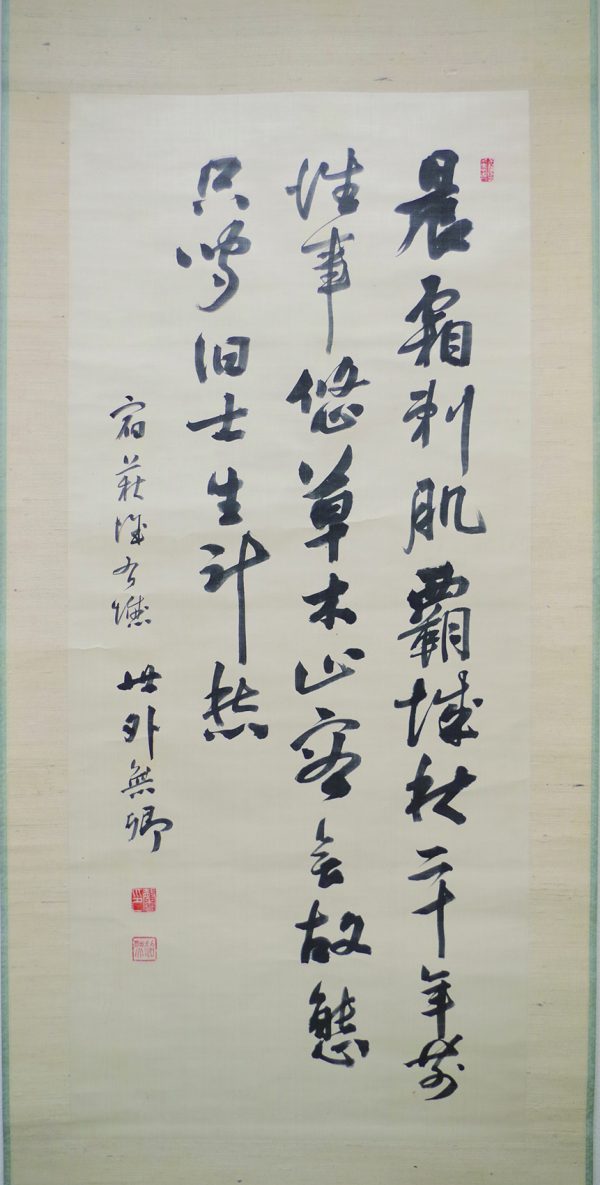 晨霜刺肌覇城秋二十年前
往事悠草木山容故態
只旧士生計愁
宿萩城有懐 世外無卿